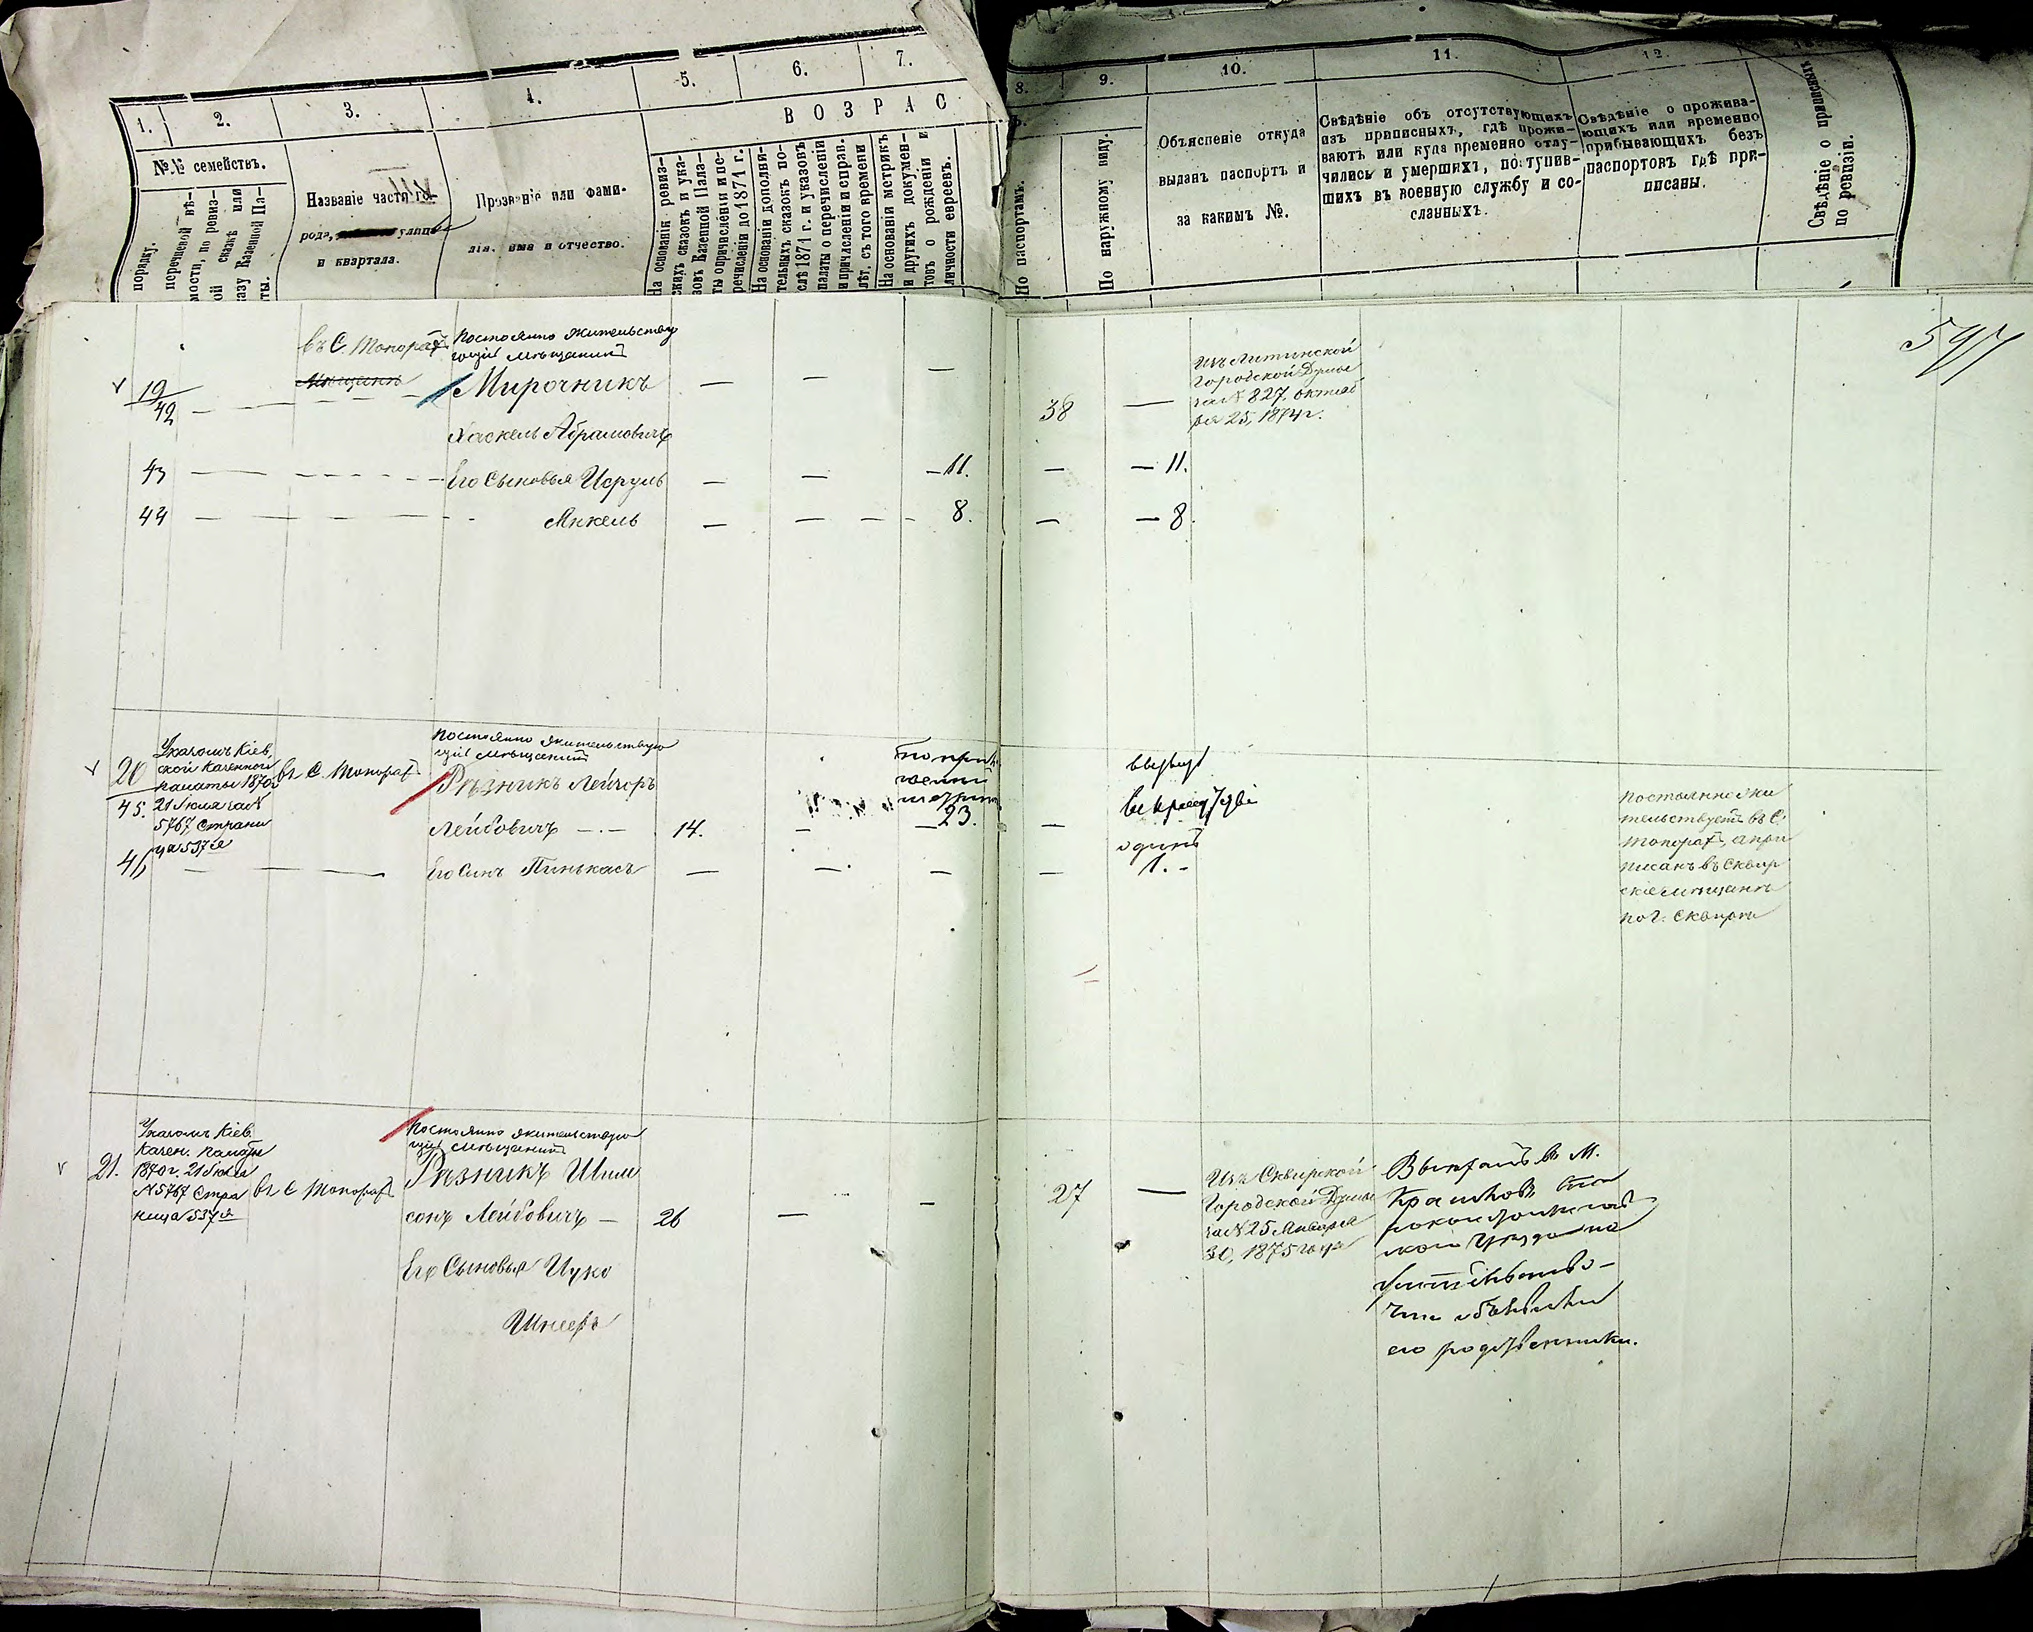 1. 2. 3. 4. 5. 6. 7.
В О З Р А С
№№ семействъ.
порядку.
перечневой вѣ-
мости, по ревиз-
ой сказкѣ или
казу Казенной Па-
ты.
Названіе части го-
рода, улицы
и квартала.
Прозваніе или фами-
лія, имя и отчество.
На основаніи ревиз-
скихъ сказокъ и ука-
зовъ Казенной Пала-
ты о причисленіи и пе-
речисленіи до 1871 г.
На основаніи дополни-
тельныхъ сказокъ по-
слѣ 1871 г. и указовъ
палаты о перечисленіи
и причисленіи и спран.
лѣт. съ того времени
На основаніи метрикъ
и другихъ докумен-
товъ о рожденіи и
личности евреевъ.
8. 9. 10. 11. 12. 13.
По паспортамъ.
По наружному виду.
Объясненіе откуда
выданъ паспортъ и
за какимъ №.
Свѣдѣніе объ отсутствующихъ
изъ приписныхъ, гдѣ прожи-
ваютъ или куда временно отлу-
чились и умершихъ, поступив-
шихъ въ военную службу и со-
сланныхъ.
Свѣдѣніе о прожива-
ющихъ или временно
прибывающихъ безъ
паспортовъ гдѣ при-
писаны.
Свѣдѣніе о приписныхъ
по ревизіи.
597
въ С. Топораѣ
Постоянно жительству
ющій мѣщанинъ
19
42
Мирочникъ
Хаскель Абрамовичъ
38
Изъ Литинской
Городской Думы
за № 827. октяб
ря 25, 1874 г.
43 Его Сыновья Исруль — — — 11. — — 11.
44 Янкель — — — 8. — — 8.
20
45.
Указомъ Кіев
ской Казенной
палаты 1870 г.
21 Іюля за №
5767 Страни
ца 537 я
въ С. Топораѣ
Постоянно жительствую
щій мѣщанинъ
Рѣзникъ Лейзоръ
Лейбовичъ — 14. — — 23. —
46 Его Сынъ Пинькасъ — — — —
одинъ
1. —
Постоянно жи
тельствуетъ въ С.
Топораѣ, а при
писанъ въ Сквир
скіе мѣщане
по г. Сквирѣ
21.
Указомъ Кіев.
Казен. палаты
1870 г. 21 Іюля
№ 5767 Стра
ница 537 я
въ С Топораѣ
Постоянно жительствую
щій мѣщанинъ
Рѣзникъ Шим
сонъ Лейбовичъ — 26 — — 27 —
Его Сыновья Ицко
Шнееръ
Изъ Сквирской
Городской Думы
за № 25 Января
30, 1875 года
въ М.
его родственники.